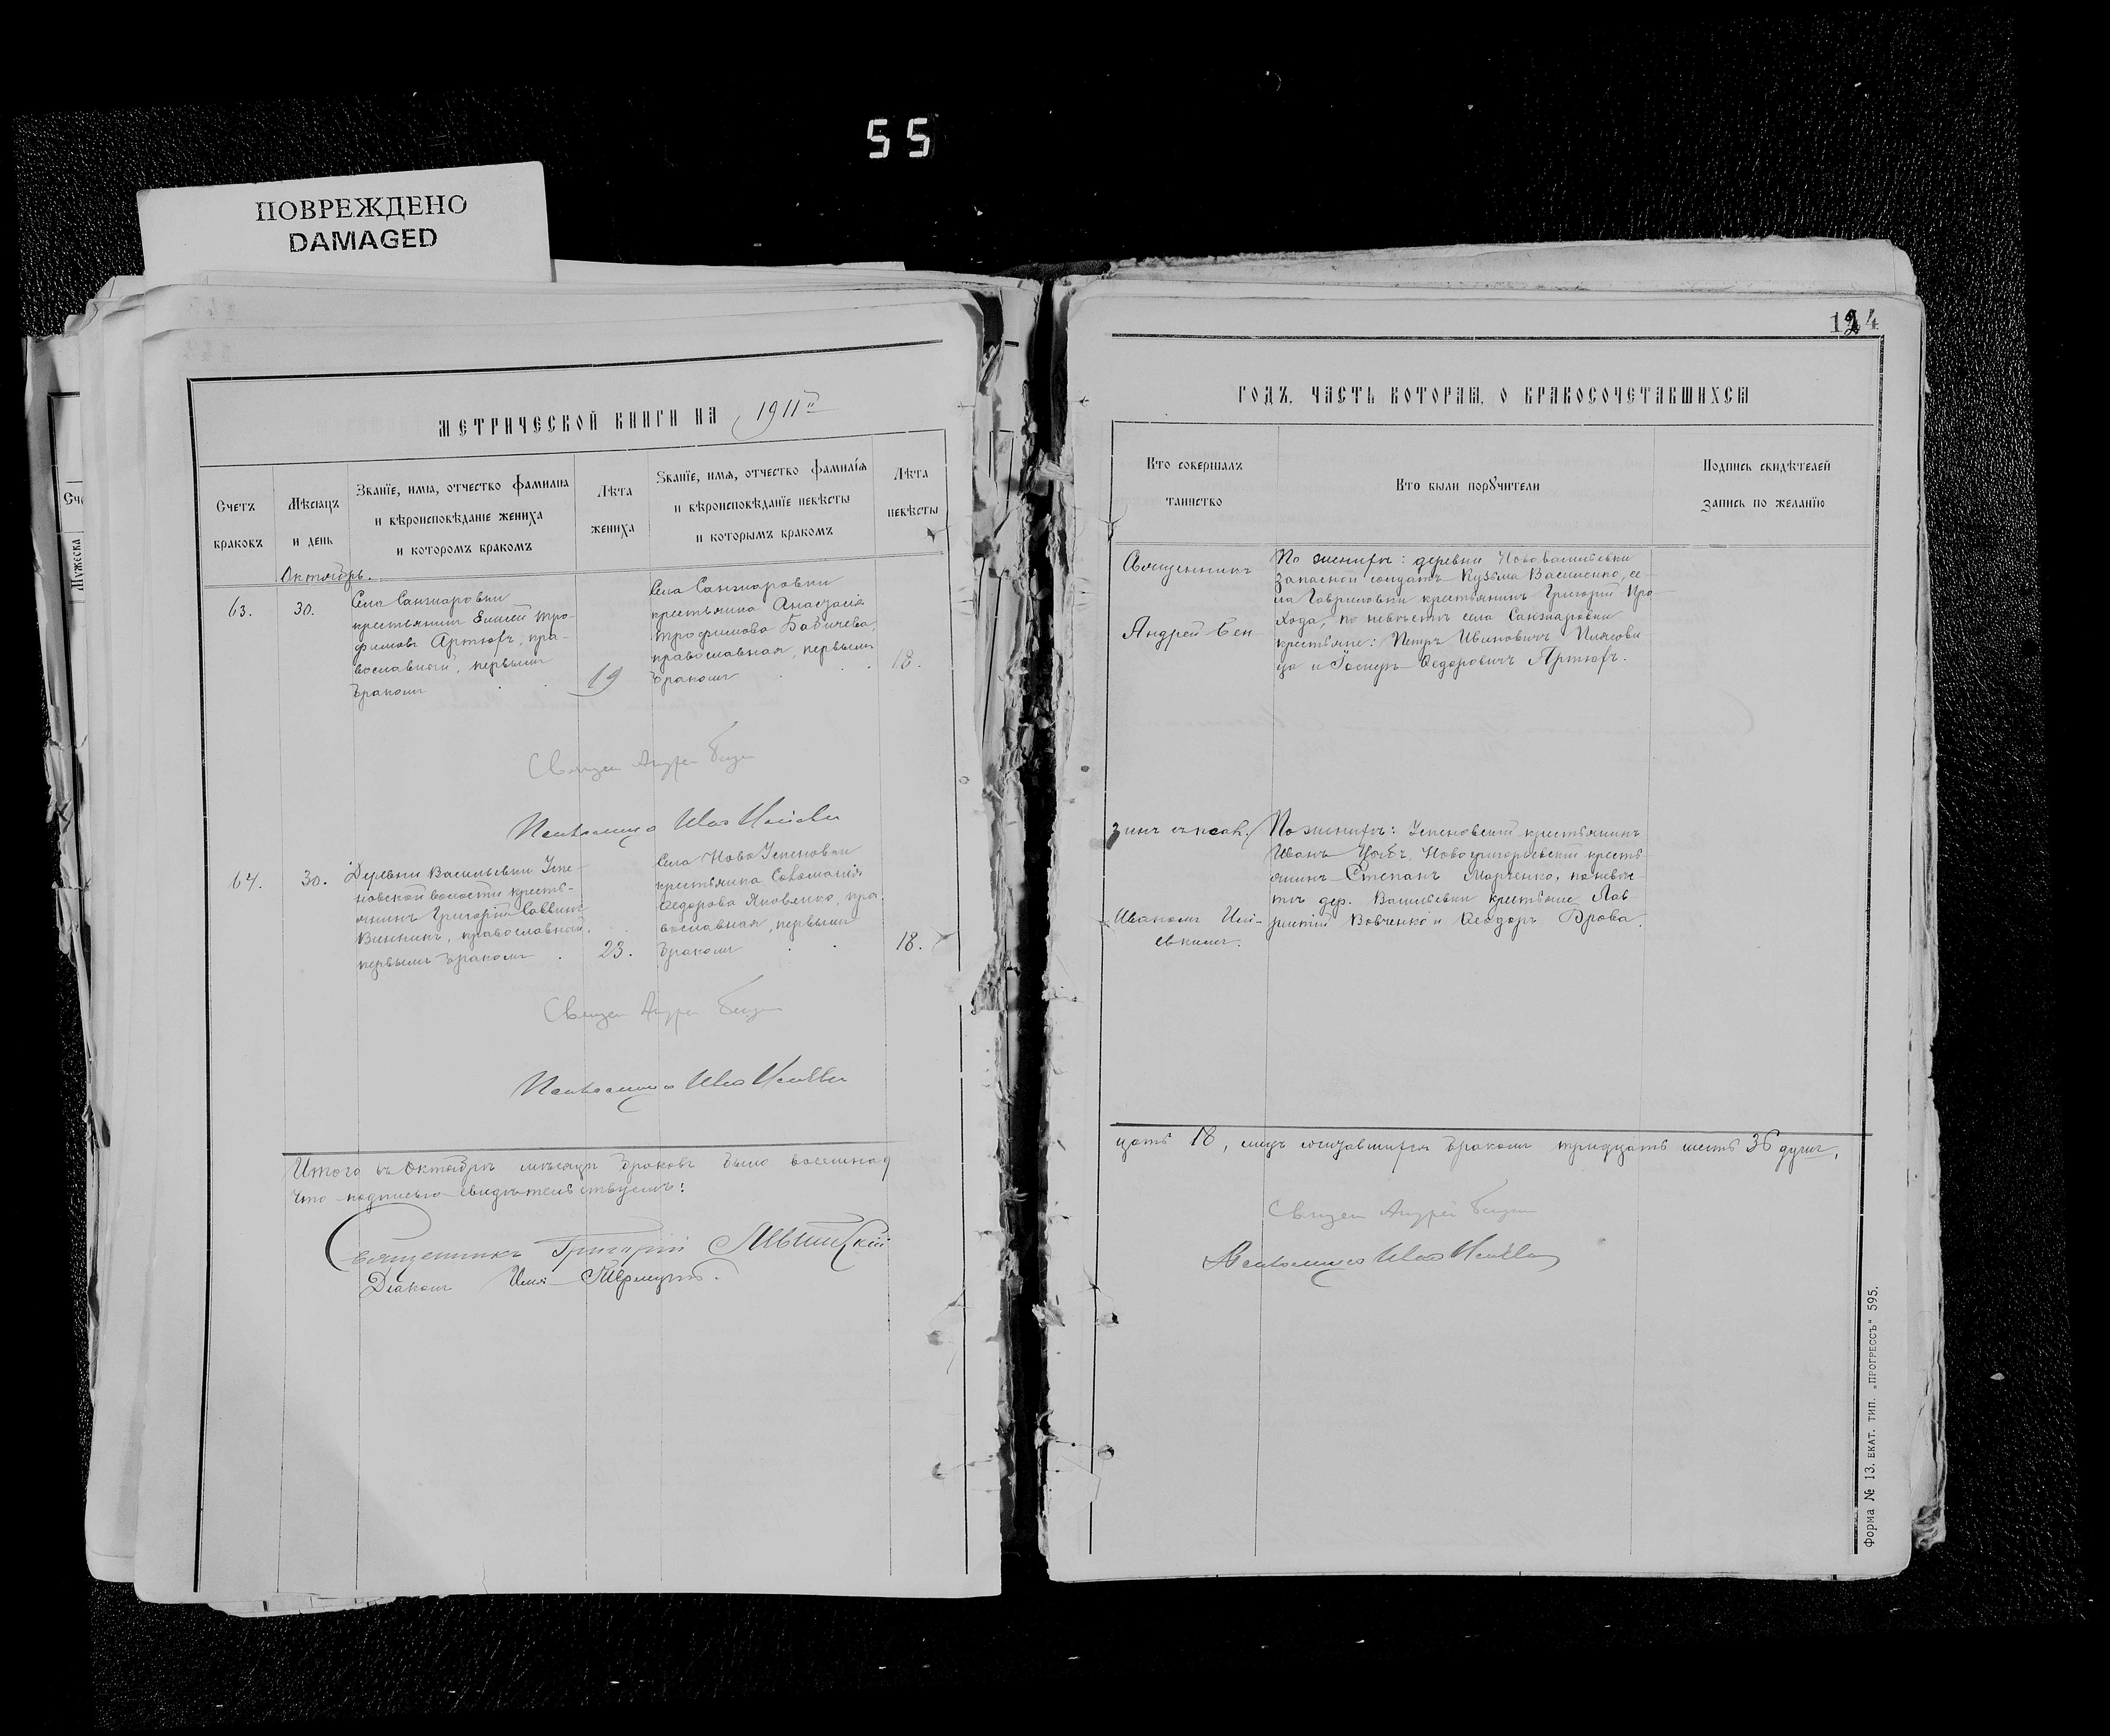 55
ПОВРЕЖДЕНО
DAMAGED
МЕТРИЧЕСКОЙ КНИГИ НА 1911й
Счетъ
браковъ
Мѣсяцъ
и день
Званїе, имя, отчество фамилїя
и вѣроисповѣданїе жениха
и которомъ бракомъ
Лѣта
жениха
Званїе, имя, отчество фамилїя
и вѣроисповѣданїе невѣсты
и которымъ бракомъ
Лѣта
невѣсты
Октябрь.
63.
30.
Села Санжаровки
крестьянинъ Елисей Тро-
фимовъ Артюхъ, пра-
вославный, первымъ
бракомъ
19
Села Санжаровки
крестьянка Анастасія
Трофимова Бабичева,
православная, первымъ
бракомъ
18.
Священ Андрей
Псаломщ Иван
64.
30.
Деревни Васильевки Успе-
новской волости кресть-
янинъ Григорій Саввинъ
Винникъ, православный,
первымъ бракомъ
23.
Села НовоУспеновки
крестьянка Соломонія
Ѳедорова Яковенко, пра-
вославная, первымъ
бракомъ
18.
Священ Андрей
Псаломщ Иван
Итого въ Октябрѣ мѣсяцѣ браковъ было восемнад
что подписью свидѣтельствуемъ:
Священникъ Григорій
Діаконъ Илія
124
ГОДЪ, ЧАСТЬ ВТОРАЯ, О БРАКОСОЧЕТАВШИХСЯ
Кто совершалъ
таинство
Кто были поручители
Подпись свидѣтелей
запись по желанїю
Священникъ
Андрей Бен
По женихѣ: деревни Нововасильевки
запасной солдатъ Кузьма Василенко, се-
ла Гавриловки крестьянинъ Григорій Про-
хода, по невѣстѣ села Санжаровки
крестьяне: Петръ Ивановичъ Плясови
ца и Іосифъ Ѳедоровичъ Артюхъ.
зинъ съ псал.
Иваномъ Иль-
евымъ.
По женихѣ: Успеновскій крестьянинъ
Иванъ Новогригорьевскій кресть-
янинъ Степанъ Марченко, по невѣс-
тѣ дер. Васильевки крестьяне Лав
рентій Вовченко и Ѳеодоръ Дрова.
цать 18, лицъ сочетавшихся бракомъ тридцать шесть 36 душъ,
Священ Андрей
Псаломщ Иван
Форма № 13. ЕКАТ. ТИП. „ПРОГРЕССЪ“ 595.
Сче
Мужеска